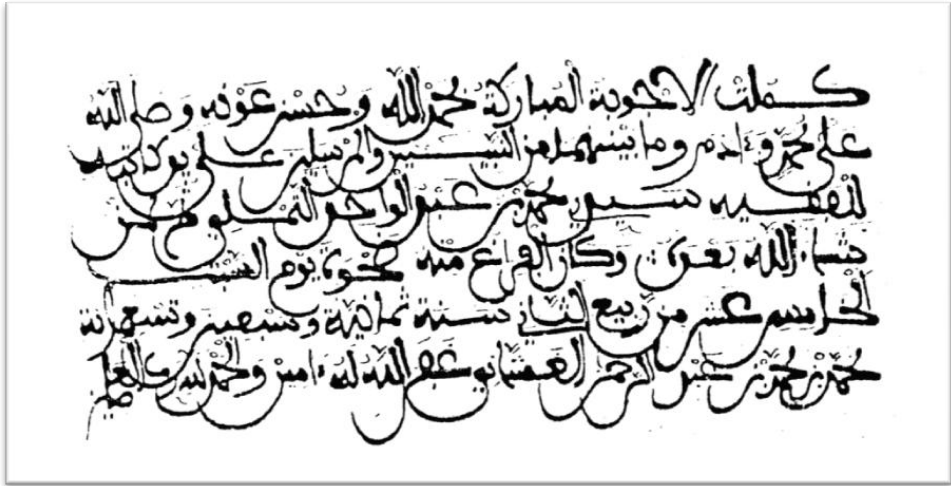 كملت الاجوبة المباركة بحمد الله وحسن عونه وصلى الله
على محمد وءادم وما بينهما من النبيين والمرسلين على يد كاتبه
للفقيه سيدي محمد بن عبد الواحد
شاء الله وكان الفراغ منه ضحوة يوم السبت
الخامس عشر من ربيع الثاني سنة ثمانية وتسعين وتسعمائة
محمد بن محمد بن عبد الرحمن العثماني غفر الله له ءامين والحمد لله رب العالمين